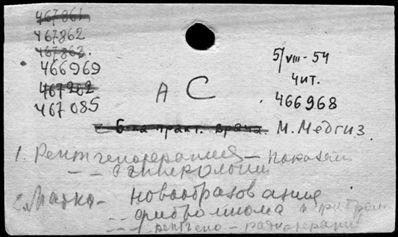 467861
467862
467863.
466969
467262
467085
А С
5/VIII-54
Чит.
466968
б-ка практ. врача М. Медгиз.
1. Рентгенотерапия — показан
—„— в гинекологии
2. Матка — новообразования
—„— фибромиома
рентгено - радиотерапия